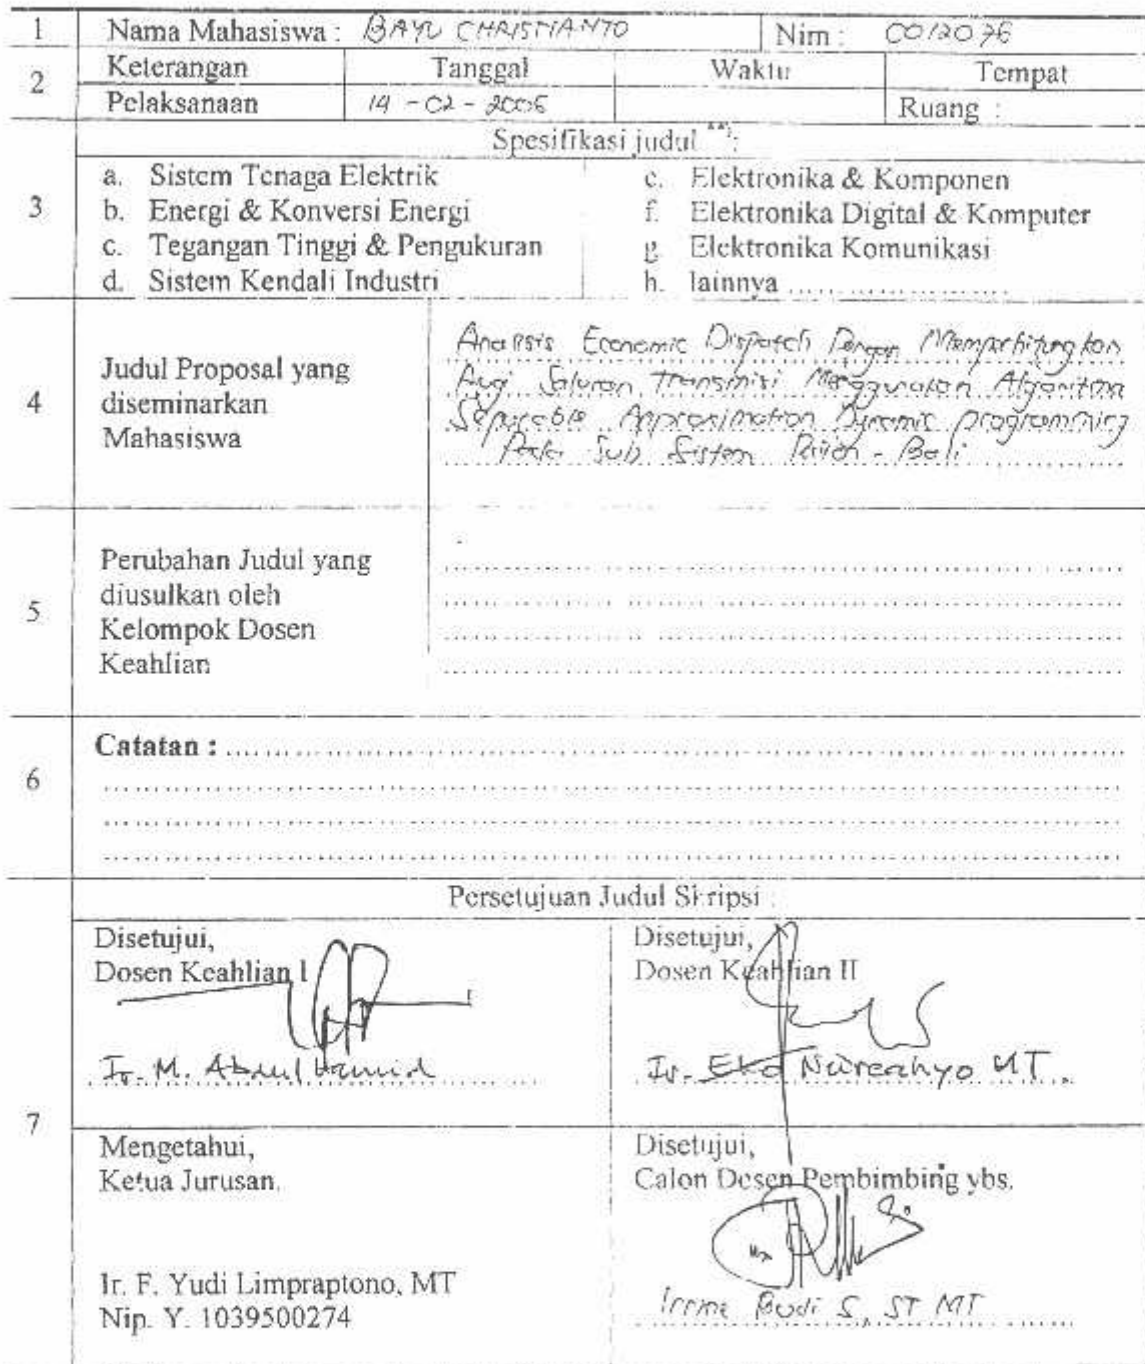 1 Nama Mahasiswa : BAYU CHRISTIANTO Nim : 0012076
2 Keterangan Tanggal Waktu Tempat
Pelaksanaan 14 - 02 - 2006 Ruang :
3 Spesifikasi judul **):
a. Sistem Tenaga Elektrik
b. Energi & Konversi Energi
c. Tegangan Tinggi & Pengukuran
d. Sistem Kendali Industri
e. Elektronika & Komponen
f. Elektronika Digital & Komputer
g. Elektronika Komunikasi
h. lainnya ......................
4 Judul Proposal yang
diseminarkan
Mahasiswa
Analisis Economic Dispatch Dengan Memperhitungkan
Rugi Saluran Transmisi Menggunakan Algoritma
Separable Approximation Dynamic programming
Pada Sub Sistem - Bali
5 Perubahan Judul yang
diusulkan oleh
Kelompok Dosen
Keahlian
6 Catatan :
Persetujuan Judul Skripsi :
7 Disetujui,
Dosen Keahlian I
Ir. M. Abdul Hamid
Disetujui,
Dosen Keahlian II
Ir. Eko Nurcahyo MT.
Mengetahui,
Ketua Jurusan.
Ir. F. Yudi Limpraptono, MT
Nip. Y. 1039500274
Disetujui,
Calon Dosen Pembimbing ybs.
Budi S, ST MT